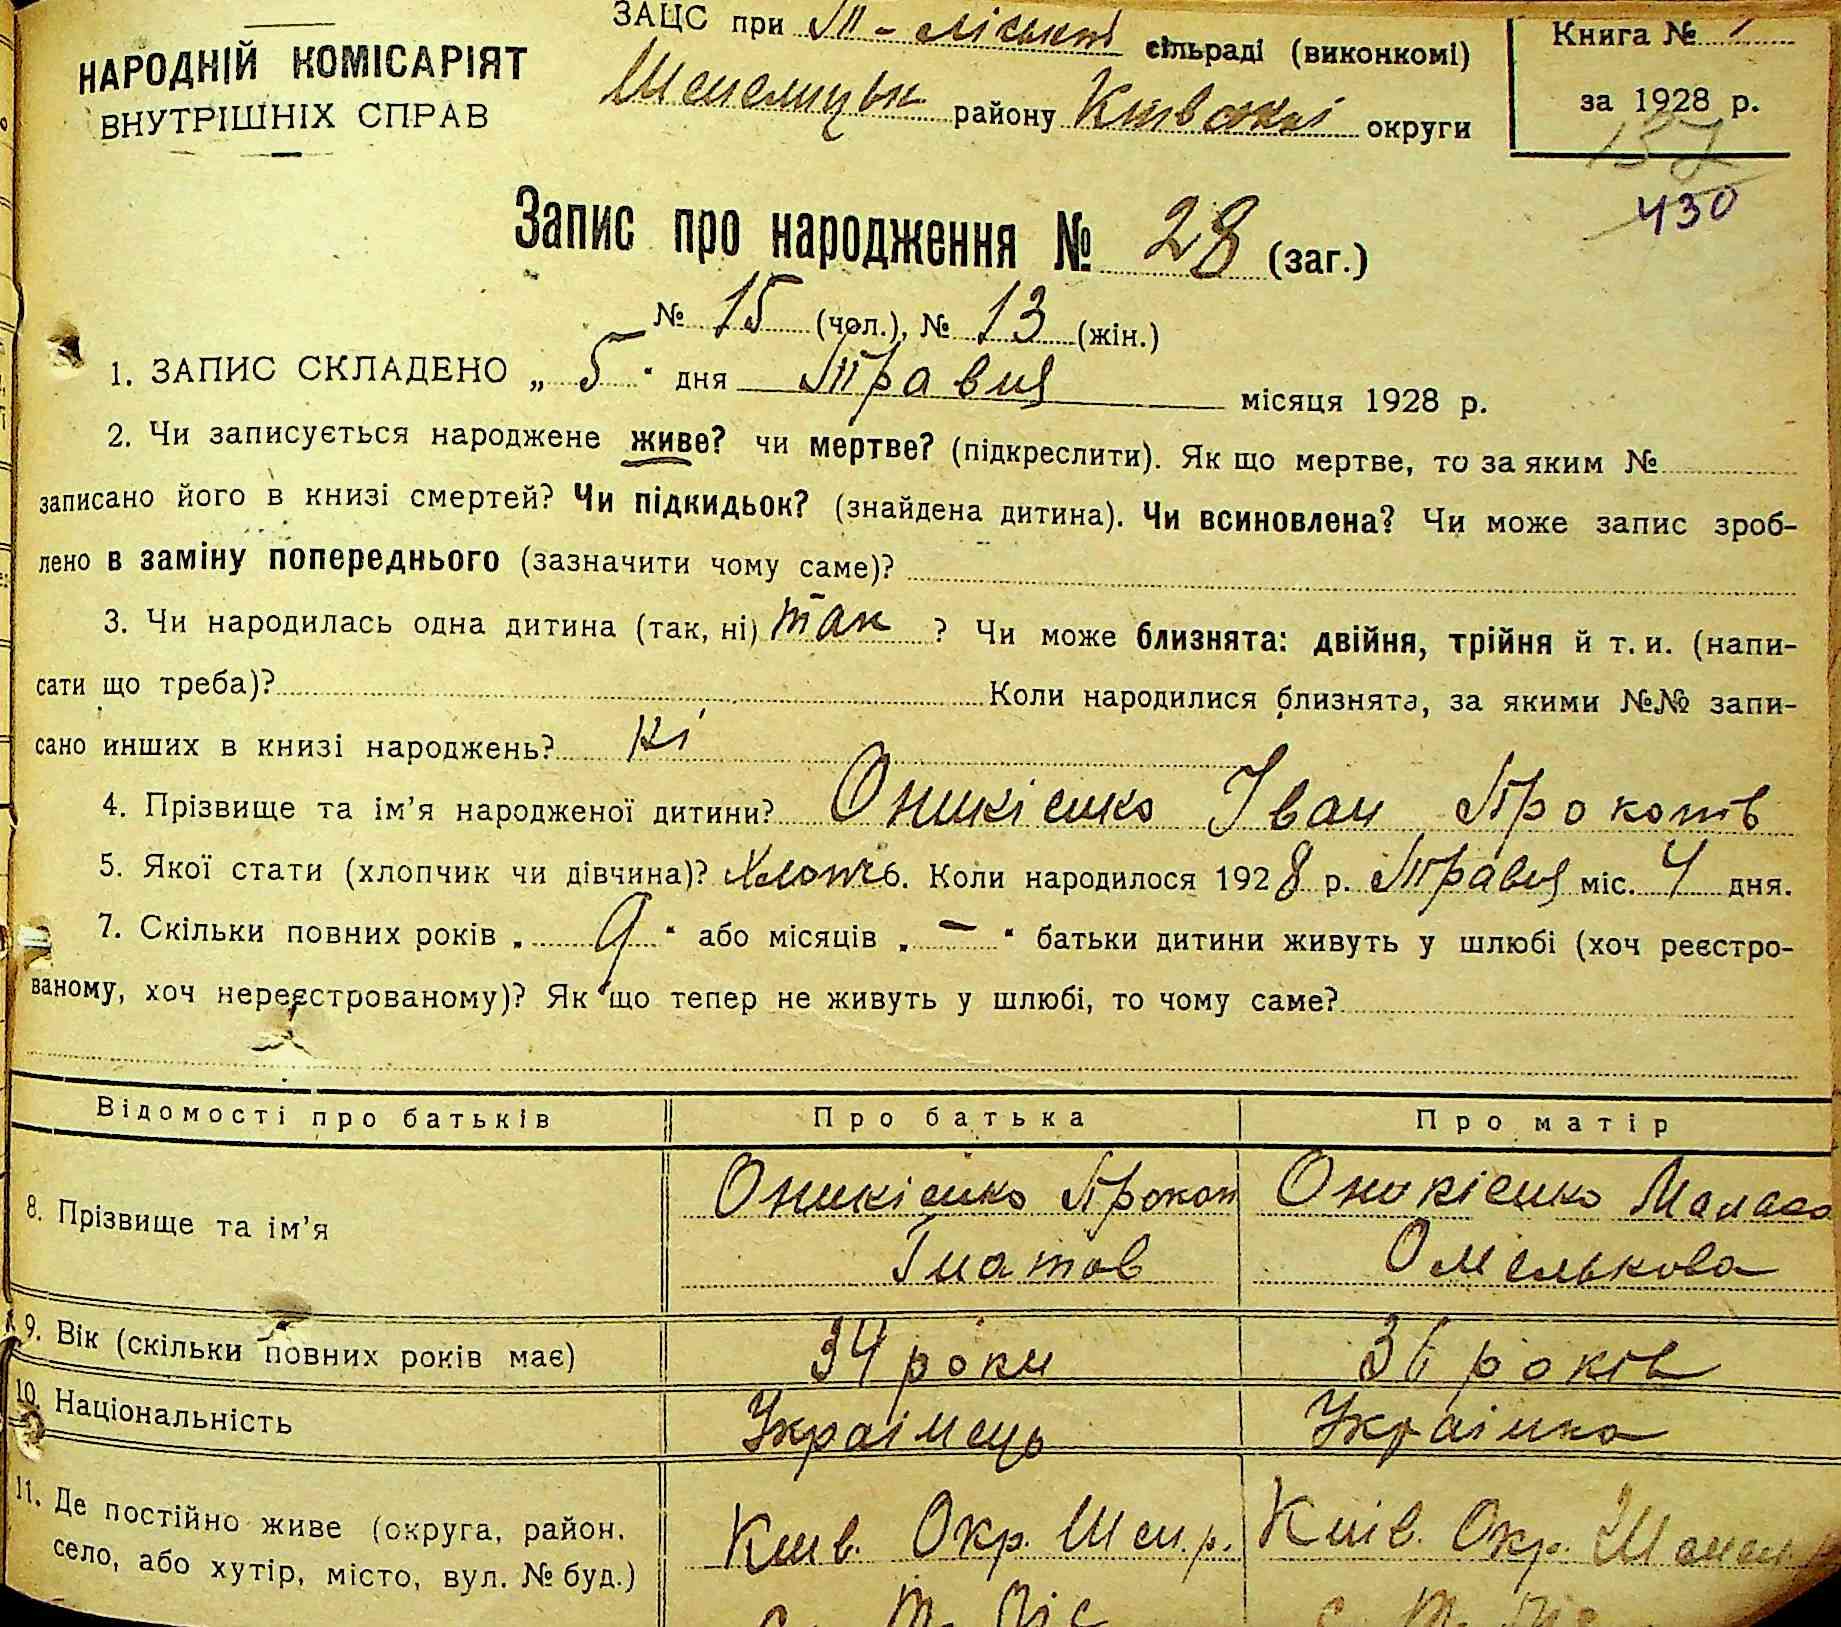 НАРОДНІЙ КОМІСАРІЯТ
ВНУТРІШНІХ СПРАВ
ЗАЦС при П-Ліській сільраді (виконкомі)
району Київської округи
Книга № 1
за 1928 р.
157
430
Запис про народження № 28 (заг.)
№ 15 (чол.), № 13 (жін.)
1. ЗАПИС СКЛАДЕНО „ 5 " дня Травня місяця 1928 р.
2. Чи записується народжене живе? чи мертве? (підкреслити). Як що мертве, то за яким №
записано його в книзі смертей? Чи підкидьок? (знайдена дитина). Чи всиновлена? Чи може запис зроб-
лено в заміну попереднього (зазначити чому саме)?
3. Чи народилась одна дитина (так, ні) так ? Чи може близнята: двійня, трійня й т. и. (напи-
сати що треба)? Коли народилися близнята, за якими №№ запи-
сано инших в книзі народжень? ні
4. Прізвище та ім'я народженої дитини? Оникієнко Іван Прокопів
5. Якої стати (хлопчик чи дівчина)? Хлопч 6. Коли народилося 1928 р. Травня міс. 4 дня.
7. Скільки повних років „ 9 " або місяців „ — " батьки дитини живуть у шлюбі (хоч реєстро-
ваному, хоч нереєстрованому)? Як що тепер не живуть у шлюбі, то чому саме?
Відомості про батьків Про батька Про матір
8. Прізвище та ім'я Оникієнко Прокоп Оникієнко
Гнатов Омелькова
9. Вік (скільки повних років має) 34 роки 36 років
10. Національність Українець Українка
11. Де постійно живе (округа, район, Київ. Окр. Шем. р. Київ. Окр.
село, або хутір, місто, вул. № буд.)